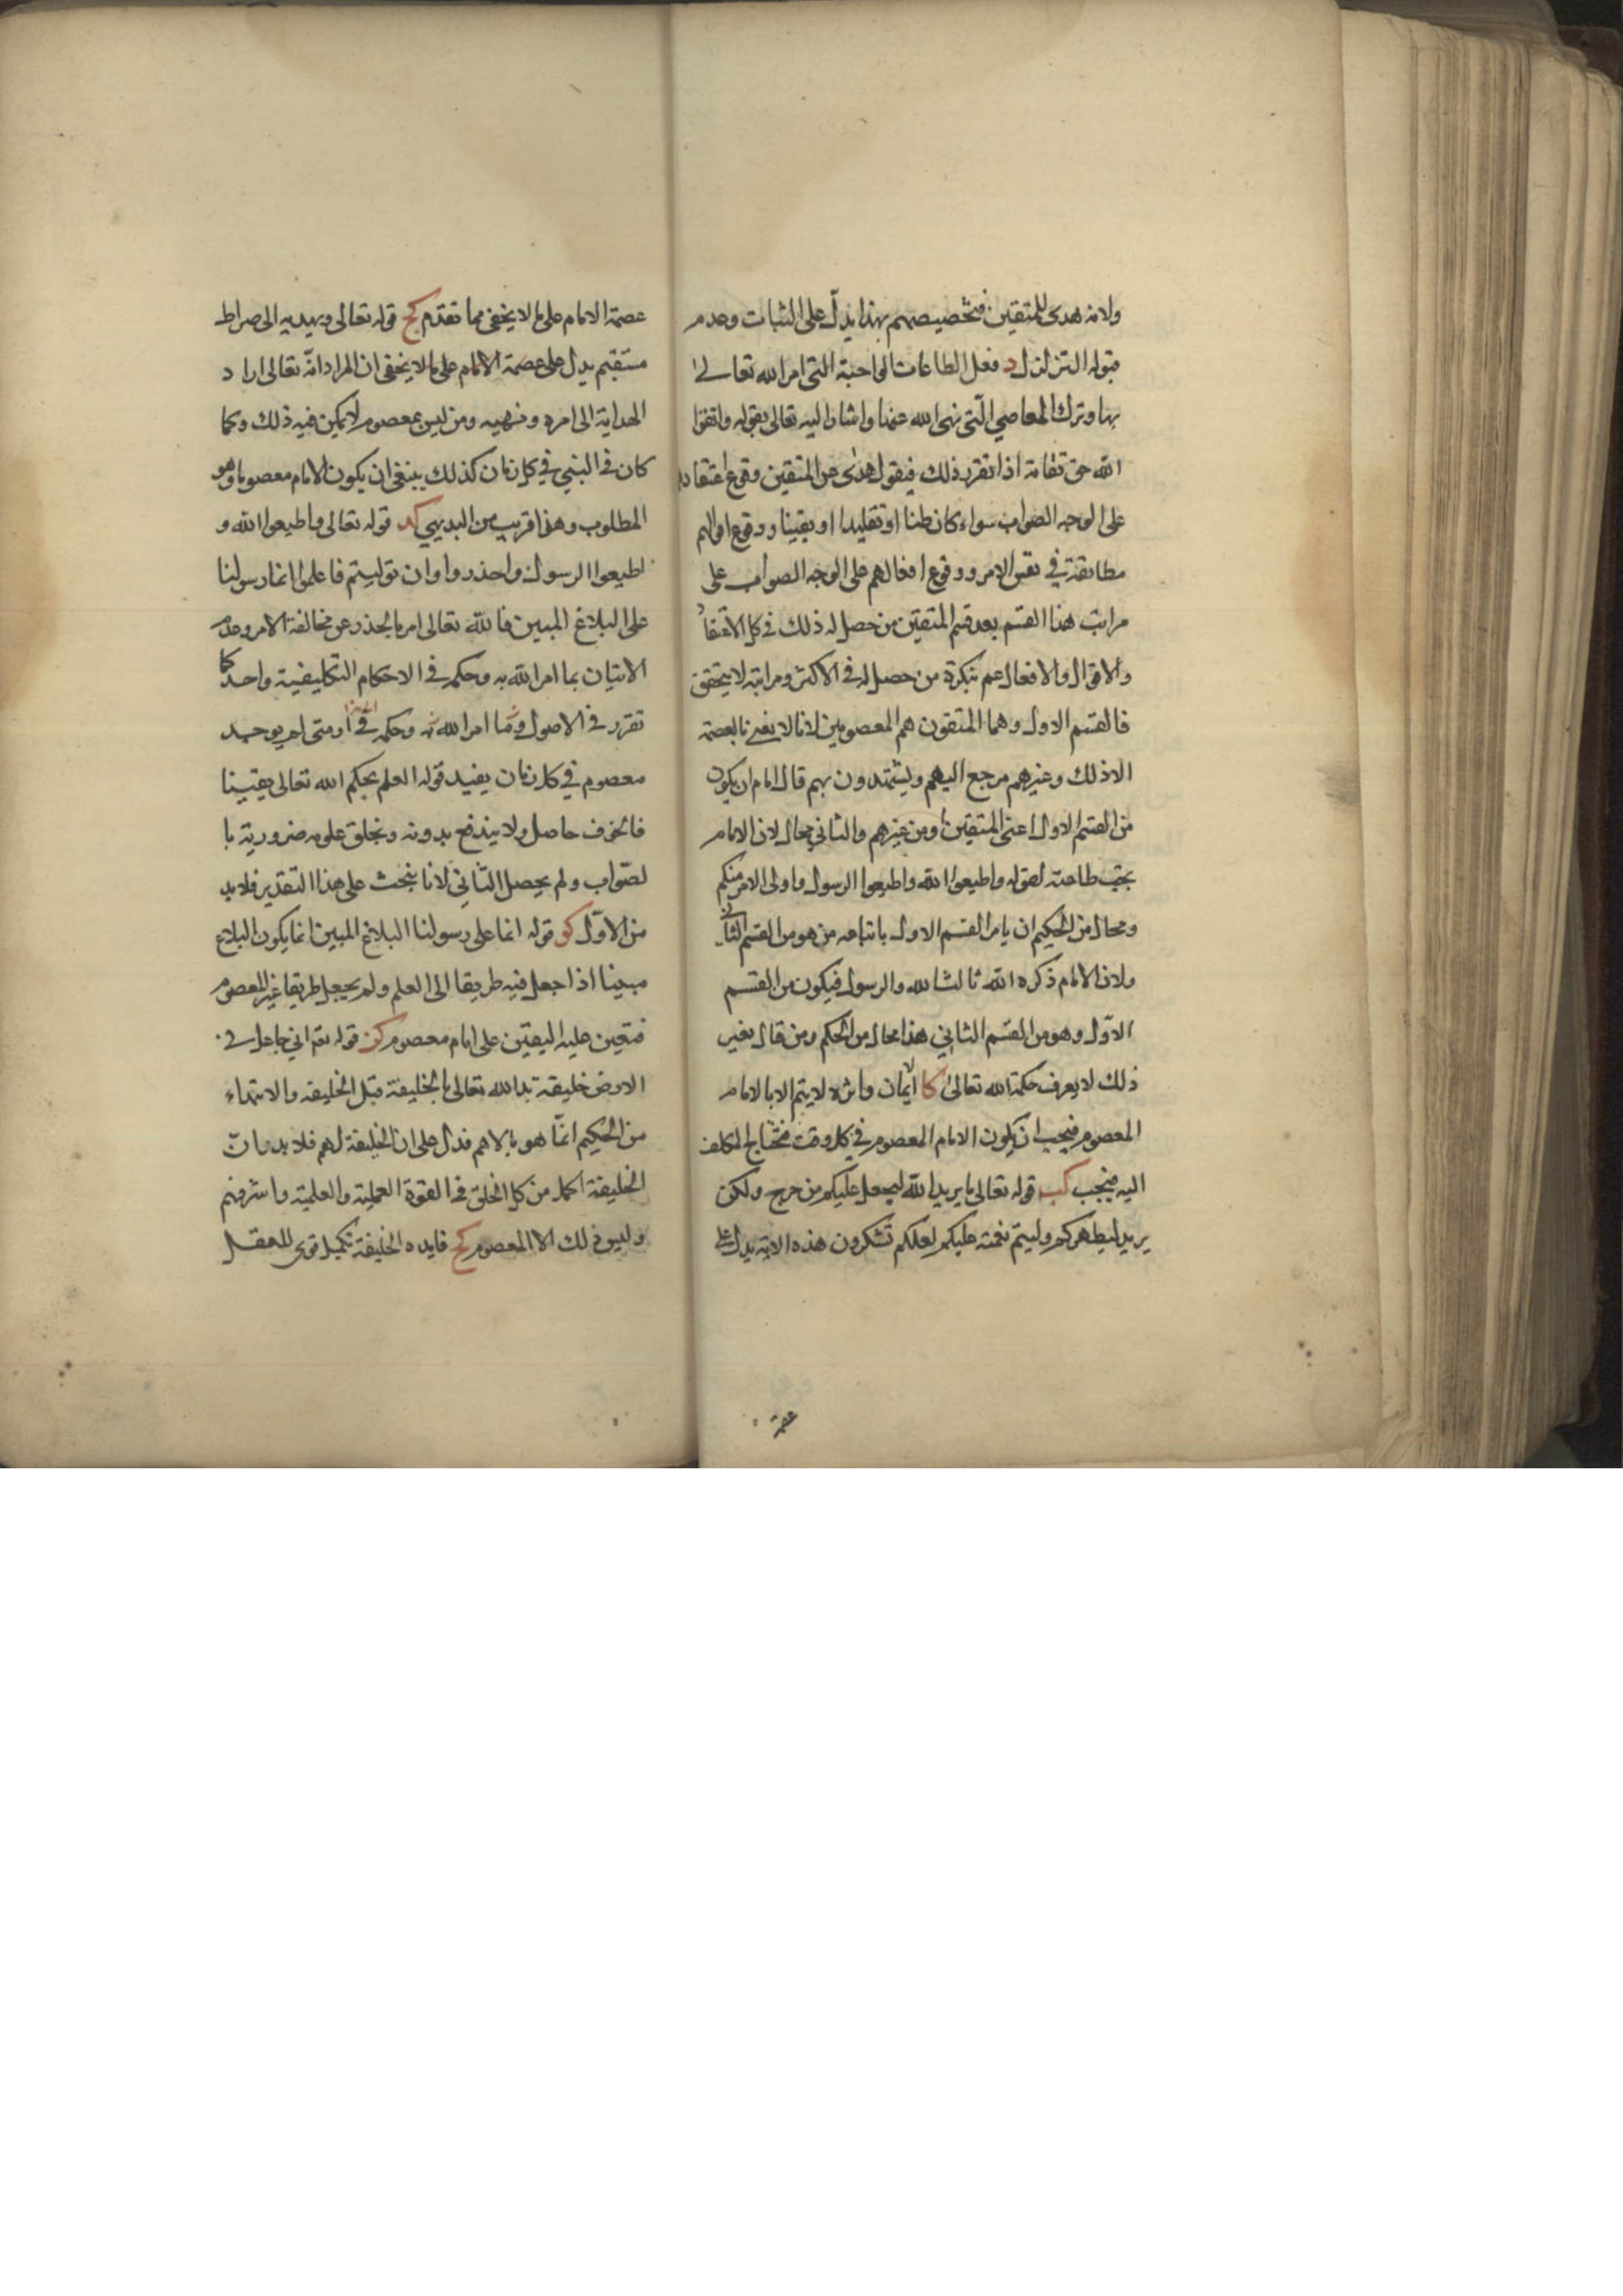 ولانه هدى للمتقين فتخصيصهم بهذا يدل على الثبات وعدم
قبوله التزلزل د فعل الطاعات الواجبة التى امر الله تعالى
بها وترك المعاصي الّتى نهى الله عنها واشار اليه تعالى بقوله واتقوا
الله حق تقاته اذا تقرر ذلك فيقول هدى عن المتقين وقوع اعتقاد
على الوجه الصواب سواء كان ظنا او تقليدا او يقينا ووقوع اقوالهم
مطابقة في نفس الامر ووقوع افعالهم على الوجه الصواب على
مراتب هذا القسم بعد قسم المتقين من حصل له ذلك في كل الاعتقا
والاقوال والافعال عم نكرة من حصل له في الاكثر ومراتبه لا يتحقق
فالقسم الاول وهما المتقون هم المعصومين لانا لا نعنى بالعصمة
الا ذلك وغيرهم مرجع اليهم ويستمدون بهم قال امام ان يكون
من القسم الاول اعنى المتقين او من غيرهم والثاني محال لان الامام
يجب طاعته لقوله واطيعوا الله واطيعوا الرسول واولى الامر منكم
ومحال من الحكيم ان يامر القسم الاول باتباعه من هو من القسم الثانى
ولان الامام ذكره الله ثالثا لله والرسول فيكون من القسم
الاوّل وهو من القسم الثاني هذا محال من الحكم ومن قال بغير
ذلك لا يعرف حكمة الله تعالى كا الايمان لا يتم الا بالامام
المعصوم فيجب ان يكون الامام المعصوم في كل وقت محتاج المكلف
اليه فيجب كب قوله تعالى ما يريد الله ليجعل عليكم من حرج ولكن
يريد ليطهركم وليتم نعمته عليكم لعلكم تشكرون هذه الاية يدل على
عصمة
عصمة الامام على ما لا يخفى مما تقدم كج قوله تعالى ويهديه الى صراط
مستقيم يدل على عصمة الامام على ما لا يخفى ان المراد انّه تعالى اراد
الهداية الى امره ونهيه ومن ليس بمعصوم لا يمكن فيه ذلك وكما
كان في النبي في كل زمان كذلك ينبغي ان يكون الامام معصوما وهو
المطلوب وهذا قريب من البديهي كد قوله تعالى واطيعوا الله و
اطيعوا الرسول واحذروا وان توليتم فاعلموا انما رسولنا
على البلاغ المبين فالله تعالى امر بالحذر عن مخالفة الامر وعدم
الاتيان بما امر الله به وحكمه في الاحكام التكليفية واحد كما
تقرر في الاصول وما امر الله به وحكمه في ومتى لم يوجد
معصوم في كل زمان يفيد قوله العلم بحكم الله تعالى يقينا
فالخوف حاصل ولا يندفع بدونه ويخلق علوم ضرورية با
لصّواب ولم يحصل الثاني لانا نبحث على هذا التقدير فلا بد
من الاوّل كو قوله انما على رسولنا البلاغ المبين انما يكون البلاغ
مبينا اذا جعل فيه طريقا الى العلم ولم يجعل طريقا غير المعصوم
فتعين عليه اليقين على امام معصوم كز قوله تعم اني جاعل في
الارض خليقة بدا الله تعالى بالخليفة قبل الخليقه والابتداء
من الحكيم انمّا هو بالاهم فدل على ان الخليفة اهم فلا بد وان
الخليفة اكمل من كل الخلق في القوة العملية والعلمية واشرفهم
وليس ذلك الا المعصوم كح فايده الخليفة تكميل قوى للعقل